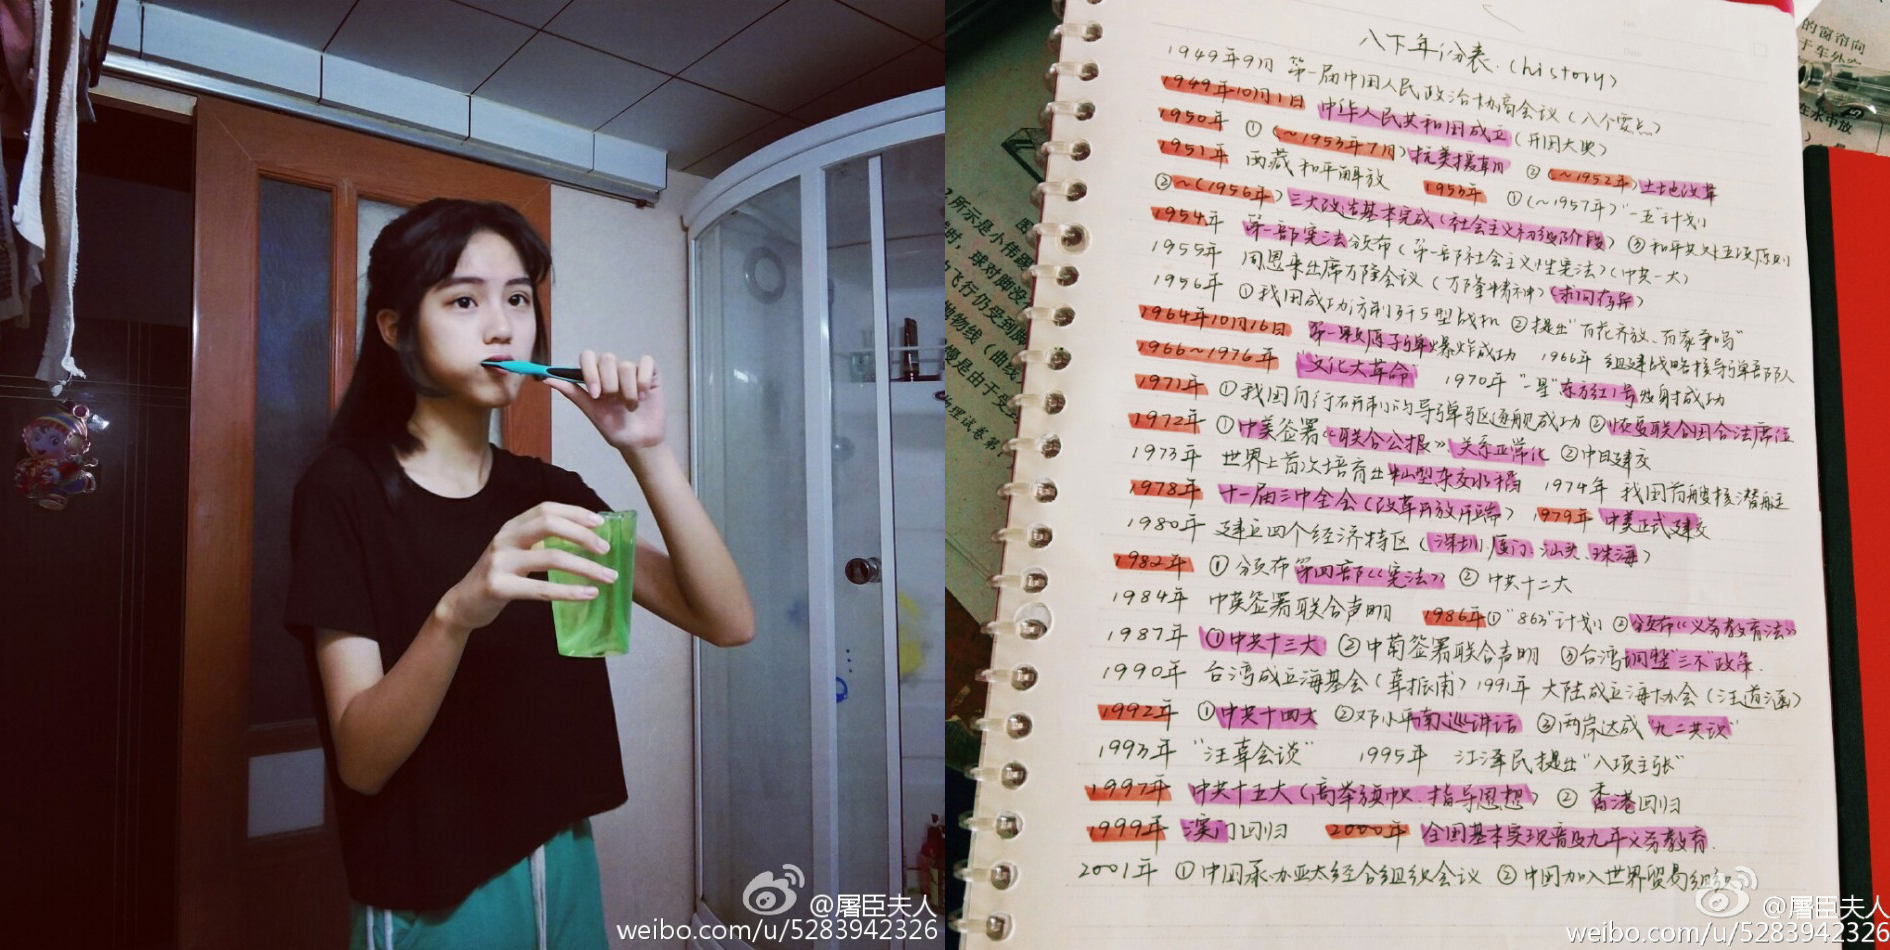 @屠臣夫人
weibo.com/u/5283942326
八下年份表.(history)
1949年9月 第一届中国人民政治协商会议(八个要点)
1949年10月1日 中华人民共和国成立(开国大典)
1950年 ①(~1953年7月)抗美援朝 ②(~1952年)土地改革
1951年 西藏和平解放 1953年 ①(~1957年)"一五"计划
②~(1956年)三大改造基本完成(社会主义初级阶段) ③和平共处五项原则
1954年 第一部宪法颁布(第一部社会主义性宪法)(中共一大)
1955年 周恩来出席万隆会议(万隆精神)(求同存异)
1956年 ①我国成功仿制歼5型战机 ②提出"百花齐放、百家争鸣"
1964年10月16日 第一颗原子弹爆炸成功 1966年 组建战略核导弹部队
1966~1976年 "文化大革命" 1970年 "一星"东方红1号发射成功
1971年 ①我国自行研制的导弹驱逐舰成功 ②恢复联合国合法席位
1972年 ①中美签署《联合公报》.关系正常化 ②中日建交
1973年 世界上首次培育出籼型杂交水稻 1974年 我国首艘核潜艇
1978年 十一届三中全会(改革开放开端) 1979年 中美正式建交
1980年 建立四个经济特区(深圳.厦门.汕头.珠海)
1982年 ①颁布第四部《宪法》 ②中共十二大
1984年 中英签署联合声明 1986年①"863"计划 ②颁布《义务教育法》
1987年 ①中共十三大 ②中葡签署联合声明 ③台湾调整"三不"政策.
1990年 台湾成立海基会(辜振甫) 1991年 大陆成立海协会(汪道涵)
1992年 ①中共十四大 ②邓小平南巡讲话 ③两岸达成"九二共识"
1993年 "汪辜会谈" 1995年 江泽民提出"八项主张"
1997年 中共十五大(高举旗帜.指导思想) ②香港回归
1999年 澳门回归 2000年 全国基本实现普及九年义务教育.
2001年 ①中国承办亚太经合组织会议 ②中国加入世界贸易组织
的窗帘向
于车外
在水中放
@屠臣夫人
weibo.com/u/5283942326